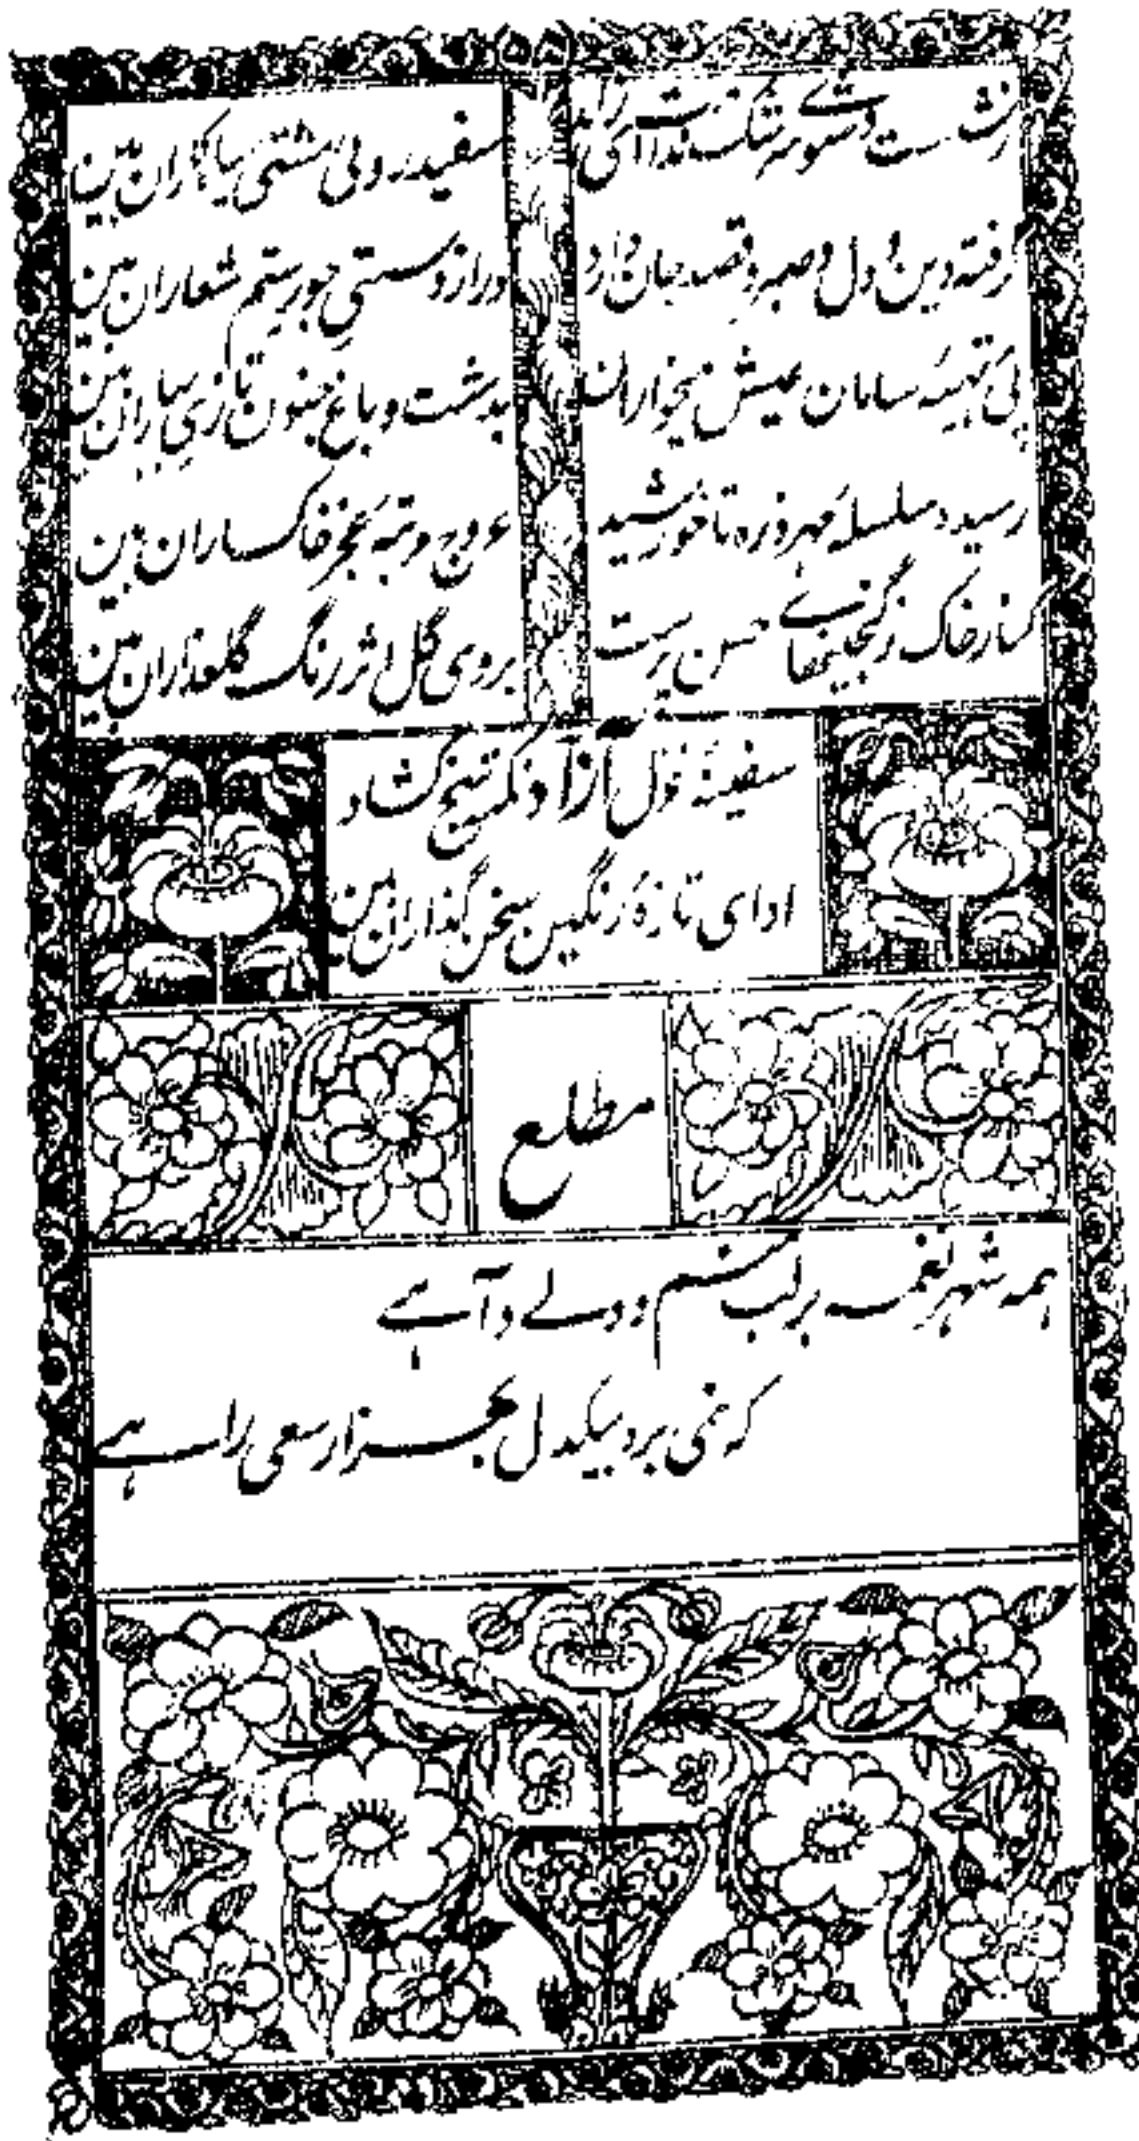 سفید روئی مشتی سیاکاران بین
گرفته دین و دل و صبر و قصد جان دارد
دراز دستیِ جور ستم شعاران بین
پئ تهیّهٔ سامان عیش میخواران
بدشت و باغ جنون تازیِ بهاران بین
رسید سلسلهٔ مهر ذره تا خورشید
عروج رتبهٔ عجز خاکساران بین
کنار خاک ز گنجینهائے حسن پرست
بروی گل اثر رنگ گلعذاران بین
سفینهٔ غزل آزاد نکته سنج کشاد
ادای تازهٔ رنگین سخن گذاران بین
مطلع
همه شهر نغمه بر لب منم و دلے و آہے
که نمی برد بیکدل بهزار سعی راہے